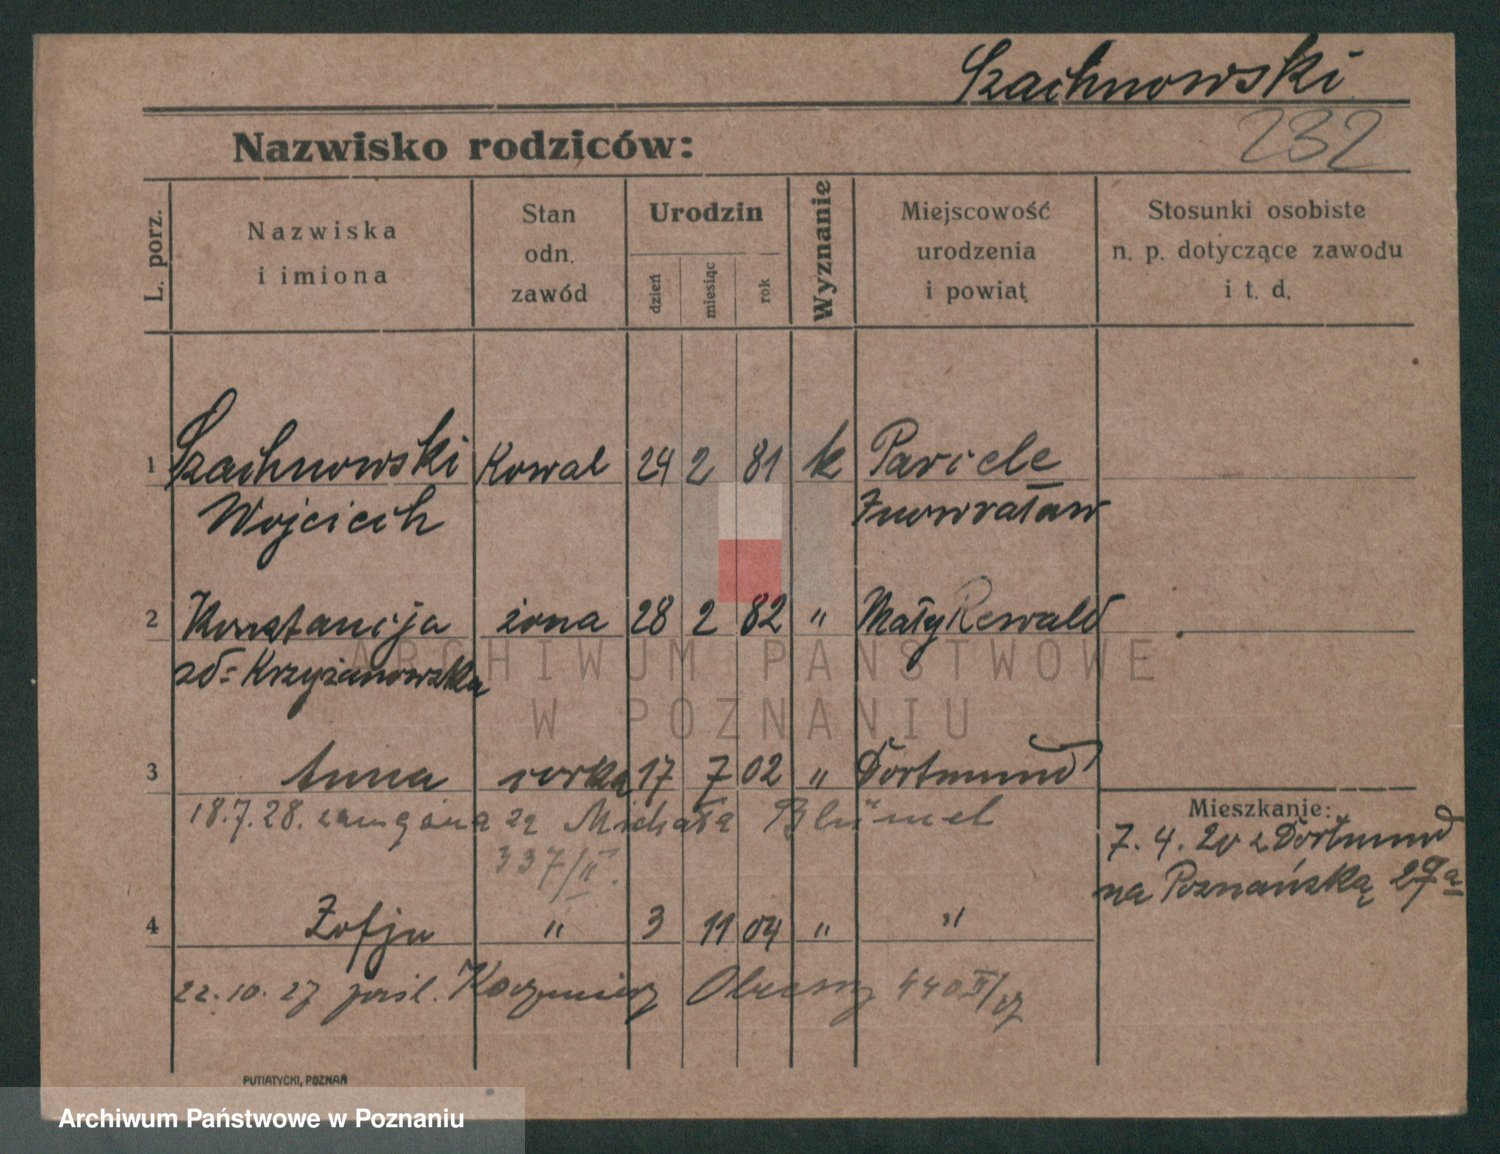 Szachnowski
Nazwisko rodziców:
232
L. porz.
Nazwiska
i imiona
Stan
odn.
zawód
Urodzin
dzień
miesiąc
rok
Wyznanie
Miejscowość
urodzenia
i powiat
Stosunki osobiste
n. p. dotyczące zawodu
i t. d.
1 Szachnowski Kowal 24 2 81 k Parcele
Wojciech Inowrocław
2 Konstancja żona 28 2 82 " Mały
zd= Krzyżanowska
3 Anna córka 17 7 02 " Dortmund
18.7.28. zamężna za Michała Blümel
337/II.
4 Zofja " 3 11 04 " "
22.10.27 440
Mieszkanie:
7. 4. 20 z Dortmund
na Poznańską 29a
PUTIATYCKI, POZNAŃ
ARCHIWUM PAŃSTWOWE
W POZNANIU
Archiwum Państwowe w Poznaniu